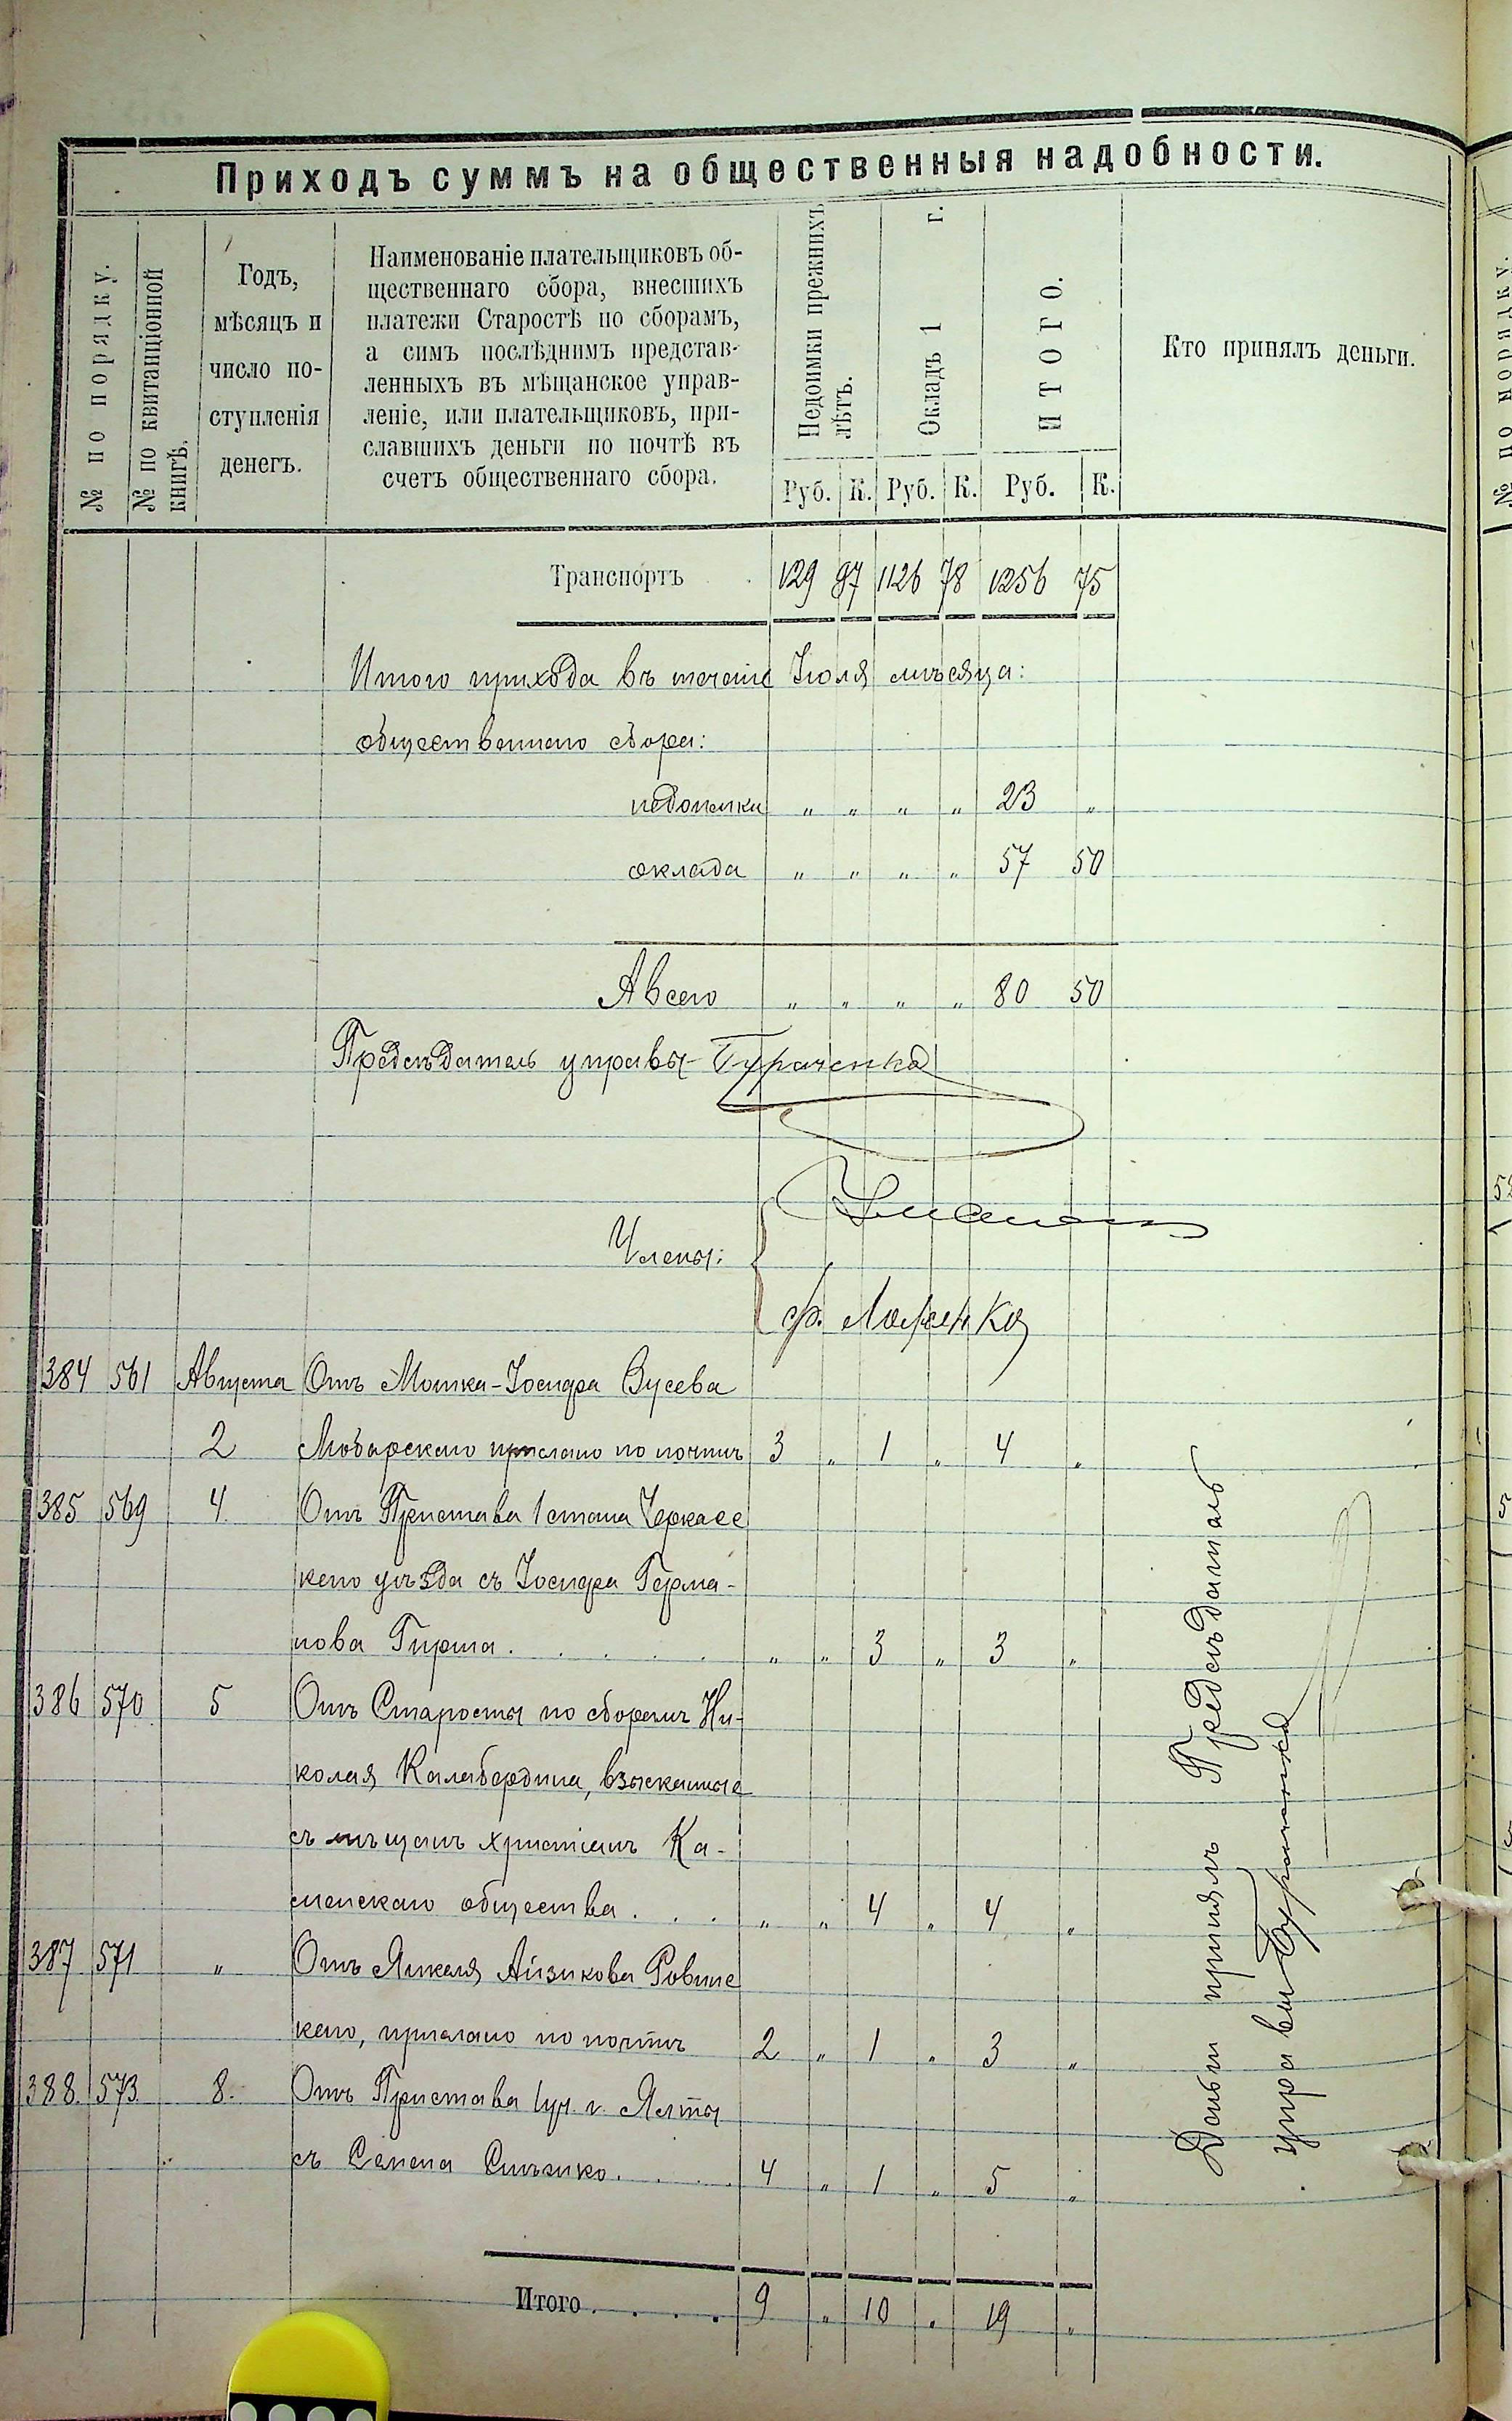 Приходъ суммъ на общественныя надобности.
№ по порядку.
№ по квитанціонной
книгѣ.
Годъ,
мѣсяцъ и
число по-
ступленія
денегъ.
Наименованіе плательщиковъ об-
щественнаго сбора, внесшихъ
платежи Старостѣ по сборамъ,
а симъ послѣднимъ представ-
ленныхъ въ мѣщанское управ-
леніе, или плательщиковъ, при-
славшихъ деньги по почтѣ въ
счетъ общественнаго сбора.
Недоимки прежнихъ
лѣтъ.
Окладъ 1 г.
ИТОГО.
Кто принялъ деньги.
Руб. К. Руб. К. Руб. К.
Транспортъ 129 97 1126 78 1256 75
Итого прихода въ теченіе Іюля мѣсяца:
общественнаго сбора:
недоимки „ „ „ „ 23 „
оклада „ „ „ „ 57 50
А всего „ „ „ „ 80 50
Предсѣдатель управы
Члены:
384 561 Августа Отъ Мошка-Іосифа Вусева
2 прислано по почтѣ 3 „ 1 „ 4 „
385 569 4 Отъ Пристава 1 стана Черкасс
каго уѣзда съ Іосифа Герма-
нова Гирша . . . . „ „ 3 „ 3 „
386 570 5 Отъ Старосты по сборамъ Ни-
колая Калабердина, взысканные
съ мѣщанъ христіанъ Ка-
менскаго общества . . . „ „ 4 „ 4 „
387 571 „ Отъ Янкеля Айзикова Ровинс
каго, прислано по почтѣ 2 „ 1 „ 3 „
388. 573. 8. Отъ Пристава 1 уч. г. Ялты
съ Семена . . . . 4 „ 1 „ 5 „
Итого . . . . 9 „ 10 „ 19 „
Деньги принялъ Предсѣдатель
управы